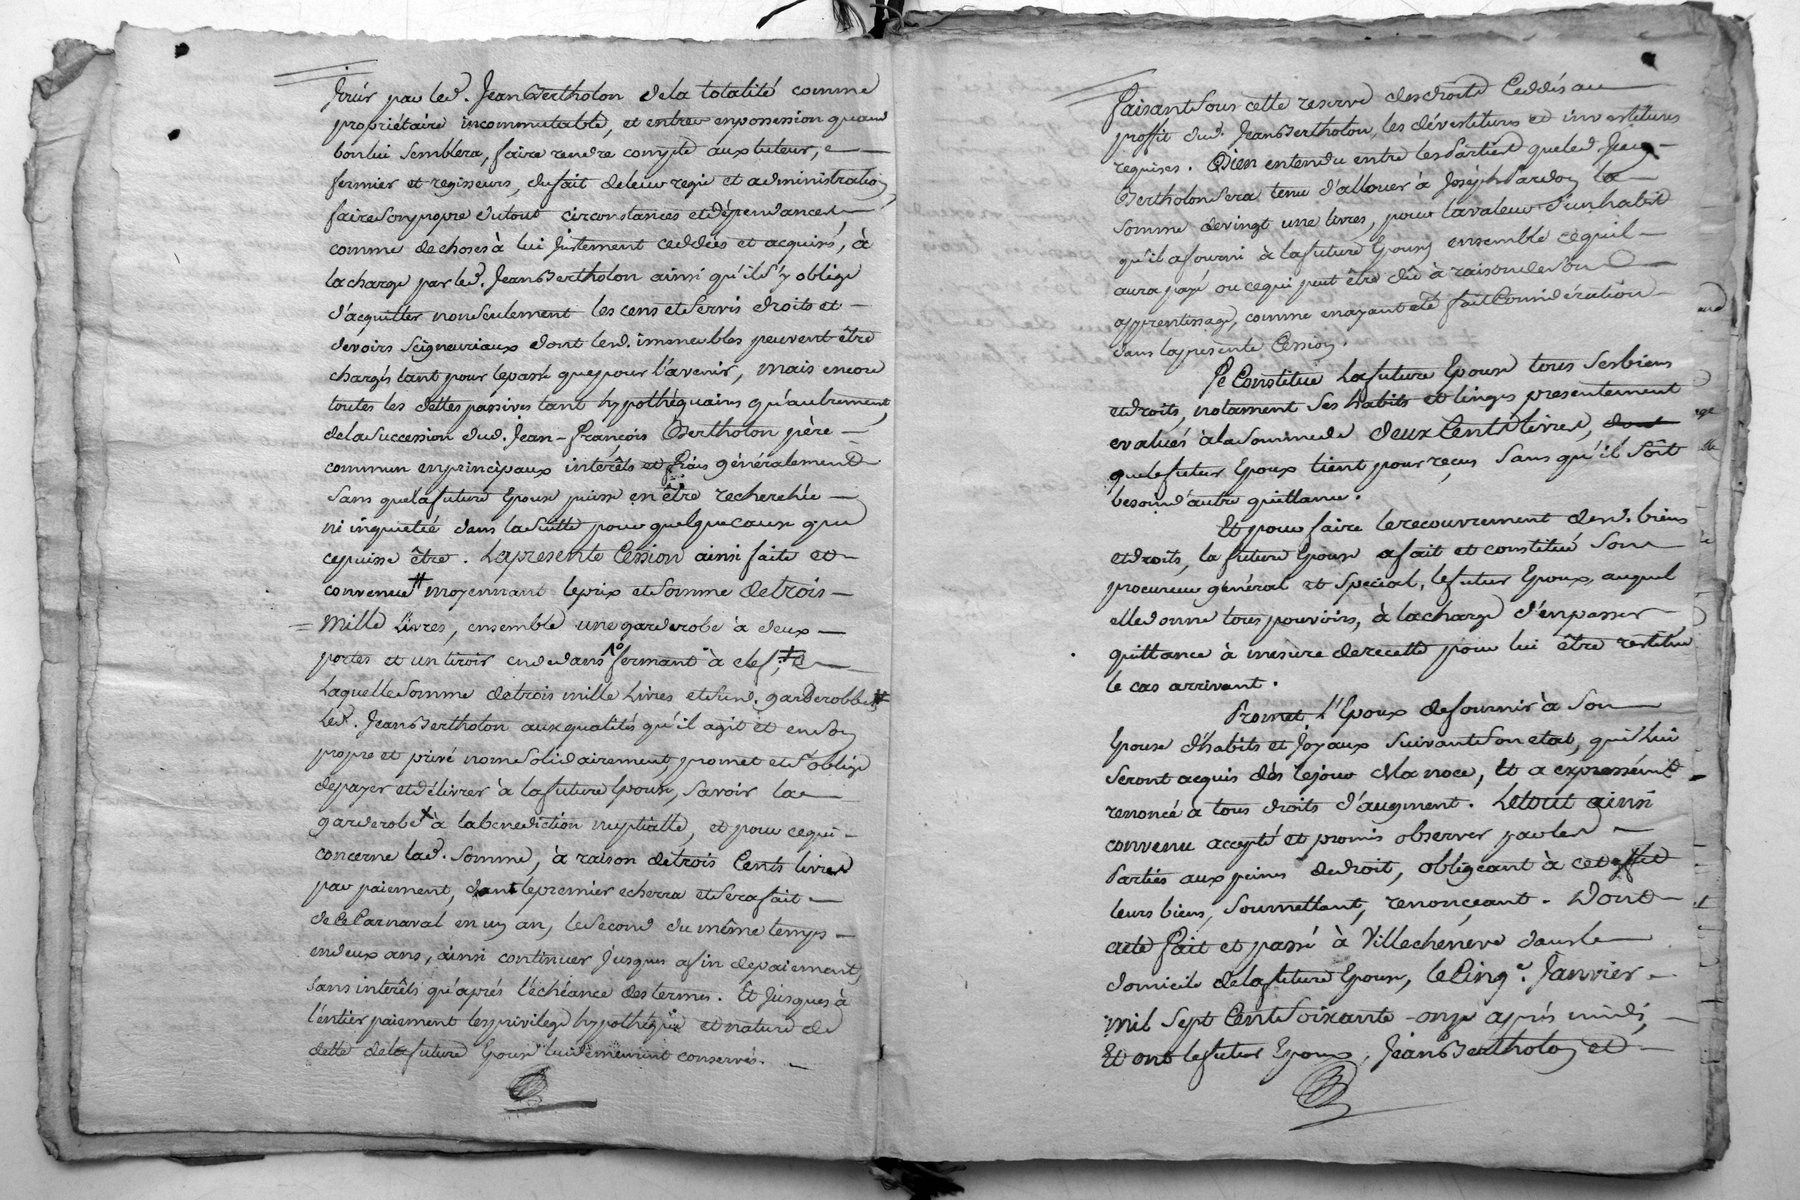 Jouir par led. Jean Bertholon de la totalité comme
propriétaire incommutable, et entrer en possession quand
bon lui semblera, faire rendre compte aux tuteur,
fermier et regisseurs, du fait de leur regie et administration,
faire son propre du tout circonstances et dépendances,
comme de choses à lui justement ceddées et acquises, à
la charge par led. Jean Bertholon ainsi qu'il s'y oblige
d'acquitter non seulement les cens et servis droits et
devoirs seigneuriaux dont lesd. immeubles peuvent être
chargés tant pour le passé que pour l'avenir, mais encore
toutes les dettes passives tant hypothéquaires qu'autrement,
de la succession dud. Jean-François Bertholon père
commun en principaux interêts et frais généralement
sans que la future Epouse puisse en être recherchée
ni inquietée dans la suitte pour quelque cause que
ce puisse être. La presente Cession ainsi faite et
convenue # moyennant le prix et somme de trois
= Mille Livres, ensemble une garderobe à deux
portes et un tiroir en dedans fermant à clef,
Laquelle somme de trois mille Livres et sud. garderobbe #
Led. Jean Bertholon aux qualités qu'il agit et en son
propre et privé nom solidairement, promet et s'oblige
de payer et délivrer à la future Epouse, savoir la
garderobe x à la benediction nuptialle, et pour ce qui
concerne lad. somme, à raison de trois Cents livres
par paiement, dont le premier echerra et sera fait
de Ce Carnaval en un an, le second du même temps
en deux ans, ainsi continuer jusques a fin de paiement,
sans interêts qu'aprés l'échéance des termes. Et jusques à
l'entier paiement les privilege hypotheque et nature de
dette de la future Epouse lui demeurent conservés.
faisant sous cette reserve des droits Ceddés au
proffit dud. Jean Bertholon, les dévestitures et investitures
requises. Bien entendu entre les Parties que led. Jean
Bertholon sera tenu d'allouer à Joseph Pardon la
somme de vingt une livres, pour la valeur d'un habit
qu'il a fourni à la future Epouse, ensemble ce qu'il
aura payé ou ce qui peut être dû à raison de son
apprentissage, comme en ayant eté fait Considération
dans la presente Cession.
Se Constitue La future Epouse tous ses biens
et droits, notament ses habits et linges presentement
evalués à la somme de deux Cents livres, dont
que le futur Epoux tient pour reçus, sans qu'il soit
besoin d'autre quittance.
Et pour faire le recouvrement desd. biens
et droits, la future Epouse a fait et constitué son
procureur général et special, le futur Epoux, auquel
elle donne tous pouvoirs, à la charge d'en passer
quittance à mesure de recette pour lui être restitué
le cas arrivant.
Promet L'Epoux de fournir à son
Epouse d'habits et joyaux suivant son etat, qui lui
seront acquis dès le jour de la noce, Et a expressément
renoncé à tous droits d'augment. Le tout ainsi
convenu accepté et promis observer par les
Parties aux peines de droit, obligeant à cet effet
leurs biens, soumettant, renonçeant. Dont
acte fait et passé à Villechenève dans le
domicile de la future Epouse, le Cinq.e Janvier
mil sept Cent soixante-onze après midi,
Et ont le futur Epoux, Jean Bertholon et